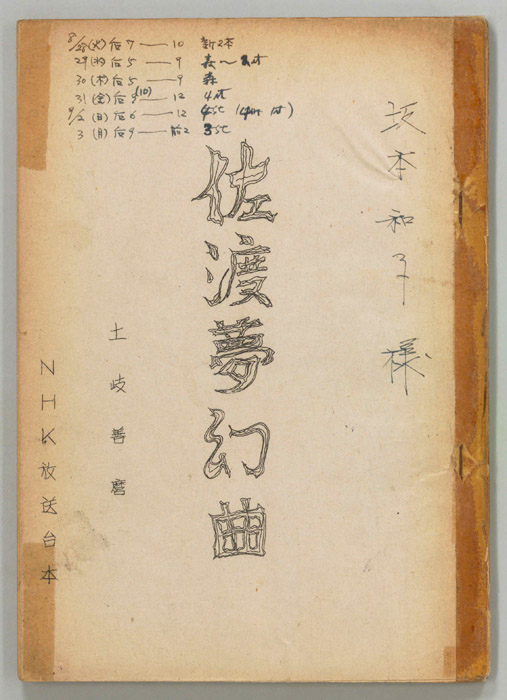 8/28(火)后7——10
29(水)后5——9
30(木)后5——9
31(金)后5(10)——12 4st
9/2(日)后6——12
3(月)后9——前2
坂本和子様
佐渡夢幻曲
土岐善麿
NHK放送台本